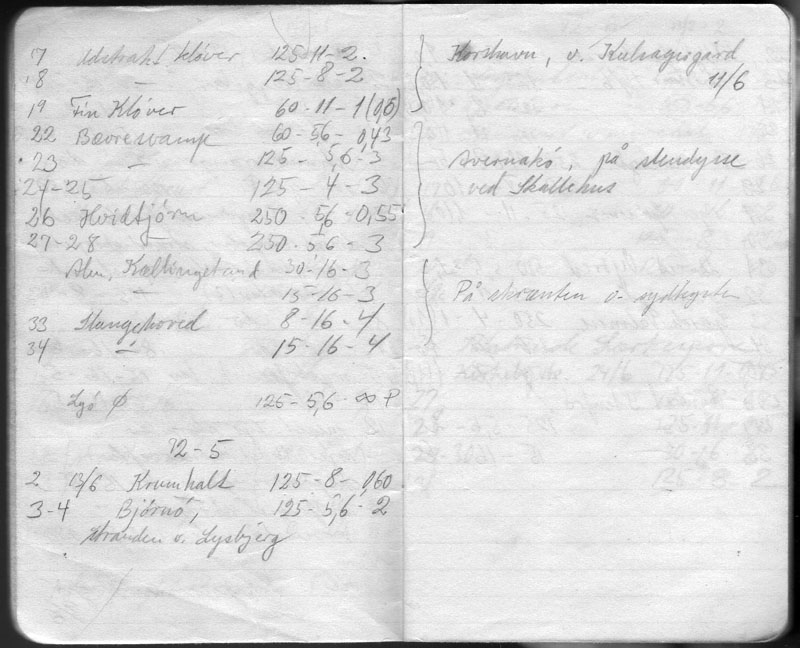 17 Udstrakt Kløver 125-11-2.
18 — 125-8-2
19 Fin Kløver 60-11-1(0,5)
22 Bævresvamp 60-5,6-0,43
23 — 125-5,6-3
24-25 125-4-3
26 Hvidtjørn 250-5,6-0,55
27-28 — 250-5,6-3
Alm. Kællingetand 30-16-3
— 15-16-3
33 Slangehoved 8-16-4
34 — 15-16-4
Lyö Ø 125-5,6-∞ P
12-5
2 13/6 Krumhals 125-8-0,60
3-4 Bjørnö, 125-5,6-2
stranden v. Lysbjerg
Korshavn, v.
11/6
Avernakö på stendysse
ved Skallehus
På skrænten v. sydkysten